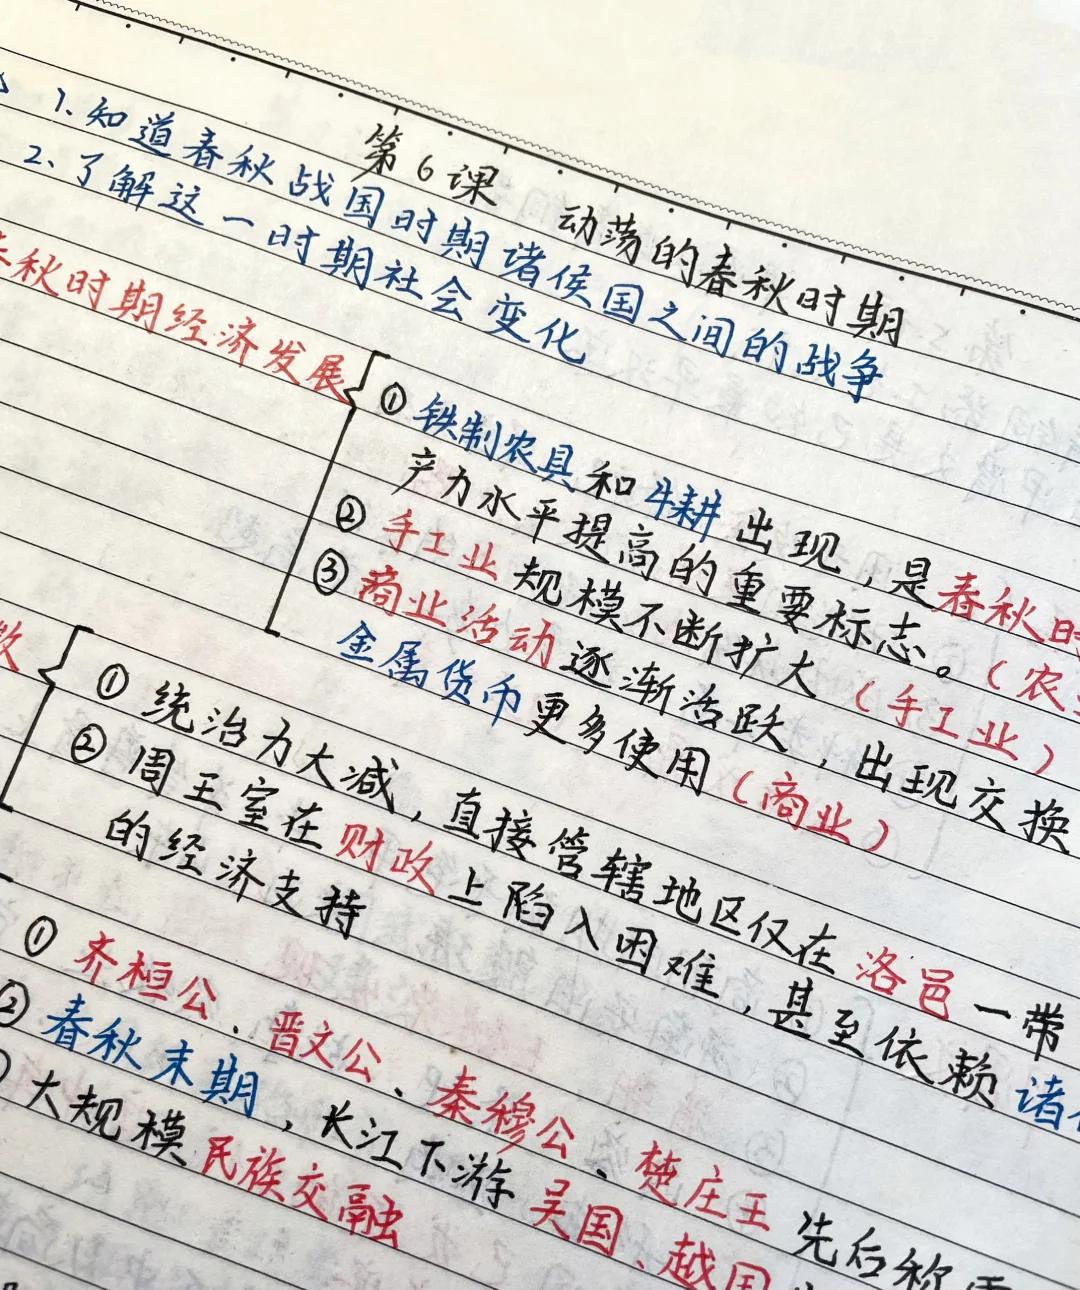 第6课 动荡的春秋时期
1、知道春秋战国时期诸侯国之间的战争
2、了解这一时期社会变化
秋时期经济发展
① 铁制农具和牛耕出现，是春秋时
产力水平提高的重要标志。（农
② 手工业规模不断扩大（手工业）
③ 商业活动逐渐活跃，出现交换
金属货币更多使用（商业）
① 统治力大减，直接管辖地区仅在洛邑一带
② 周王室在财政上陷入困难，甚至依赖诸
的经济支持
① 齐桓公、晋文公、秦穆公、楚庄王先后称
② 春秋末期，长江下游吴国、越国
大规模民族交融